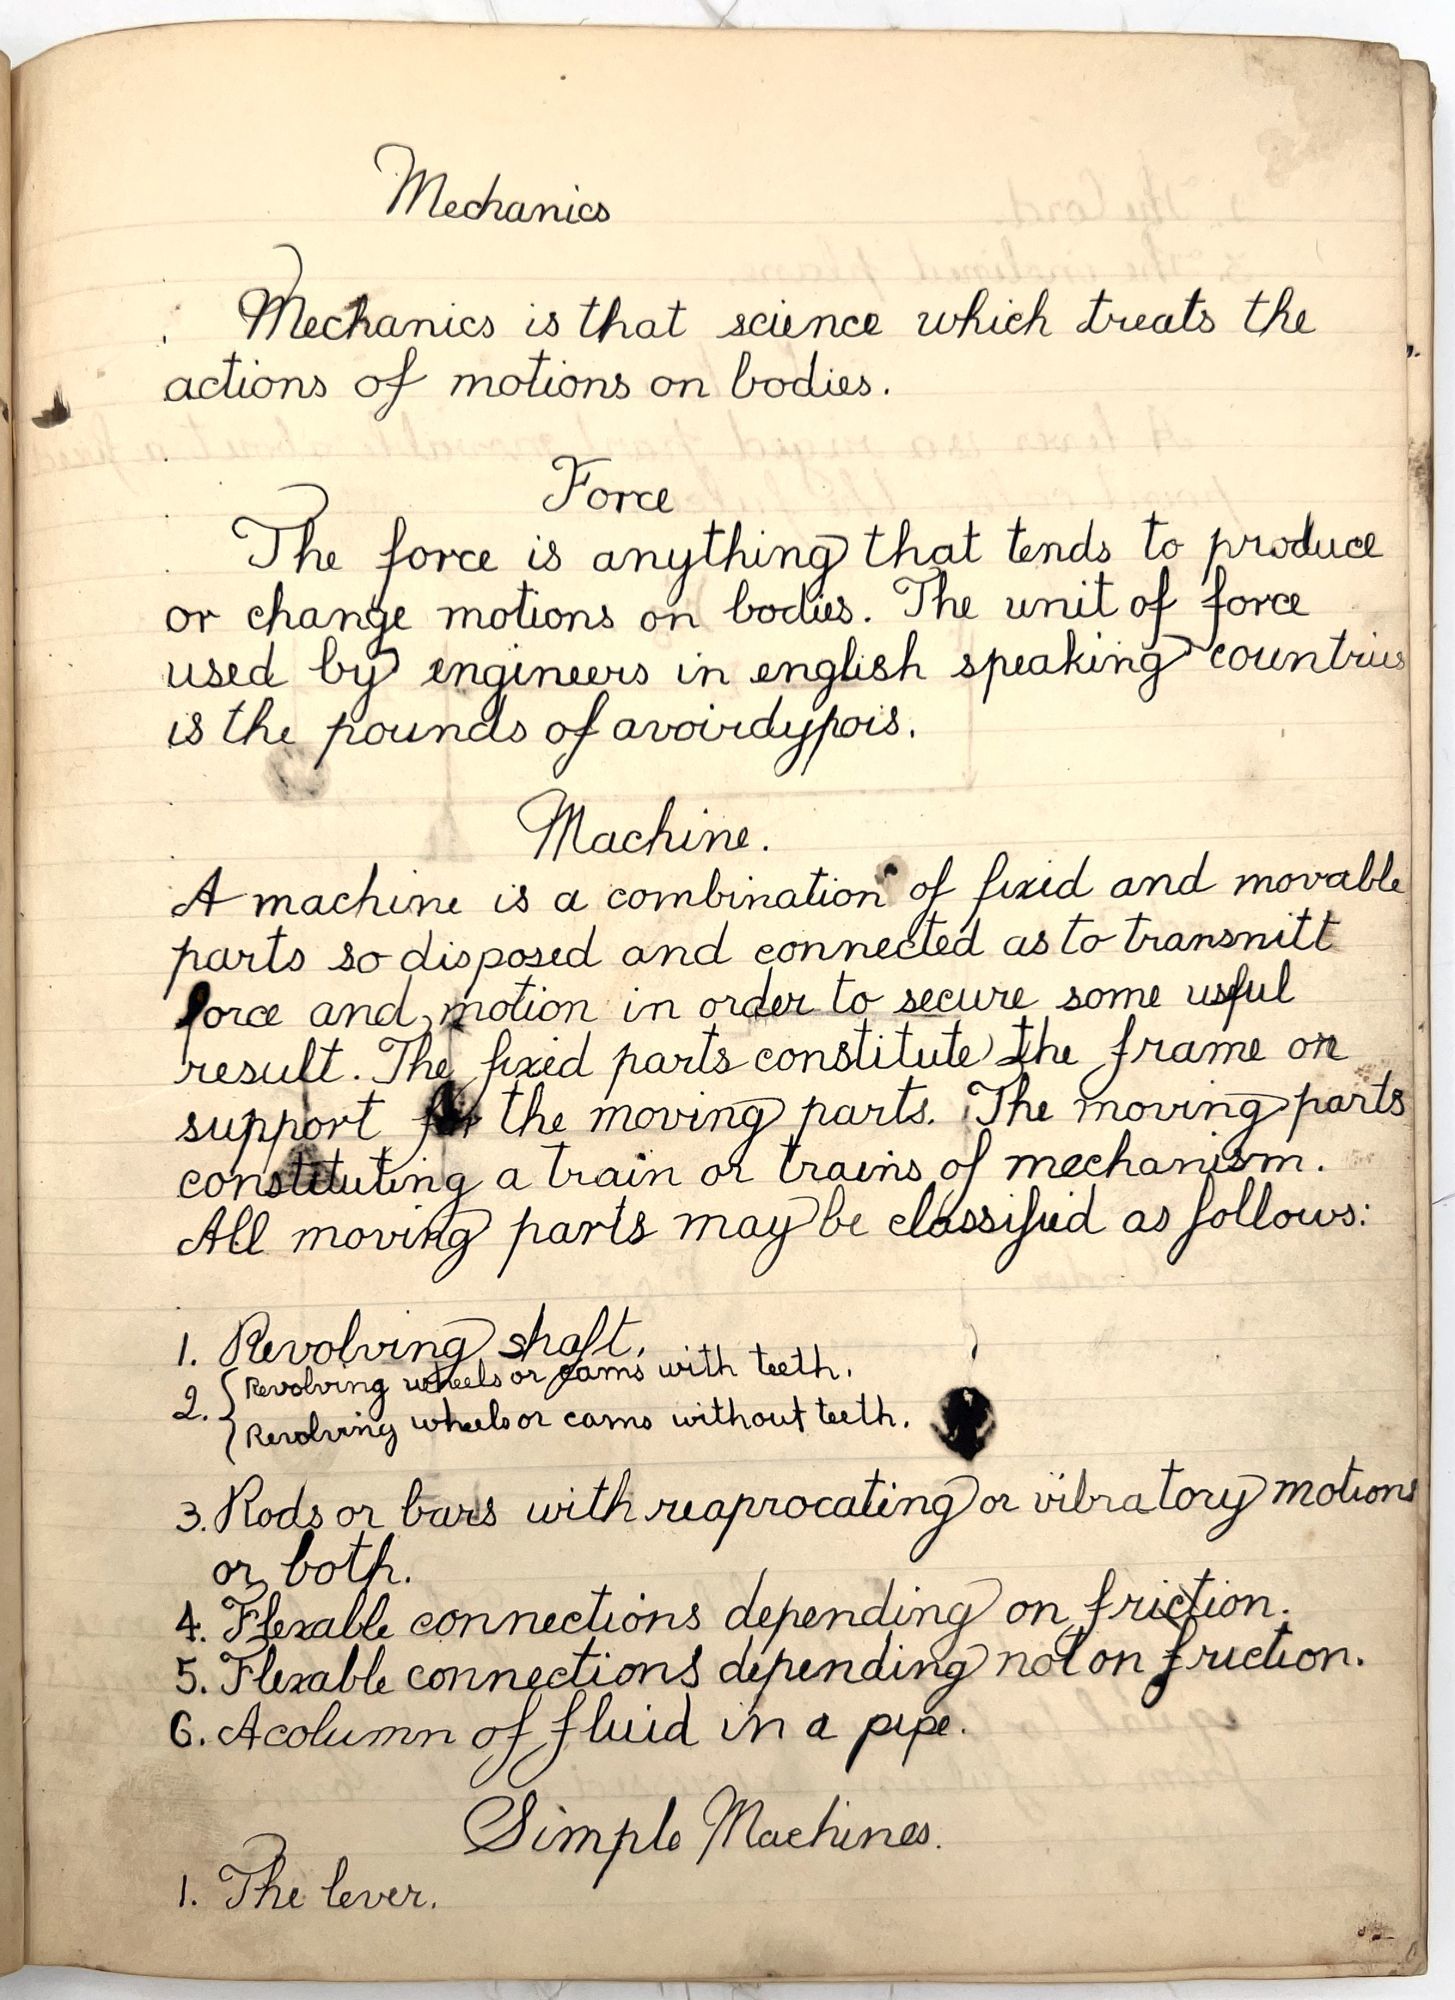 Mechanics
Mechanics is that science which treats the
actions of motions on bodies.
Force
The force is anything that tends to produce
or change motions on bodies. The unit of force
used by engineers in english speaking countries
is the pounds of avoirdypois.
Machine.
A machine is a combination of fixed and movable
parts so disposed and connected as to transmitt
force and motion in order to secure some useful
result. The fixed parts constitute the frame or
support for the moving parts. The moving parts
constituting a train or trains of mechanism.
All moving parts may be classified as follows:
1. Revolving shaft.
2. { Revolving wheels or cams with teeth.
Revolving wheels or cams without teeth.
3. Rods or bars with reaprocating or vibratory motions
or both.
4. Flexable connections depending on friction.
5. Flexable connections depending not on friction.
6. A column of fluid in a pipe.
Simple Machines.
1. The lever.